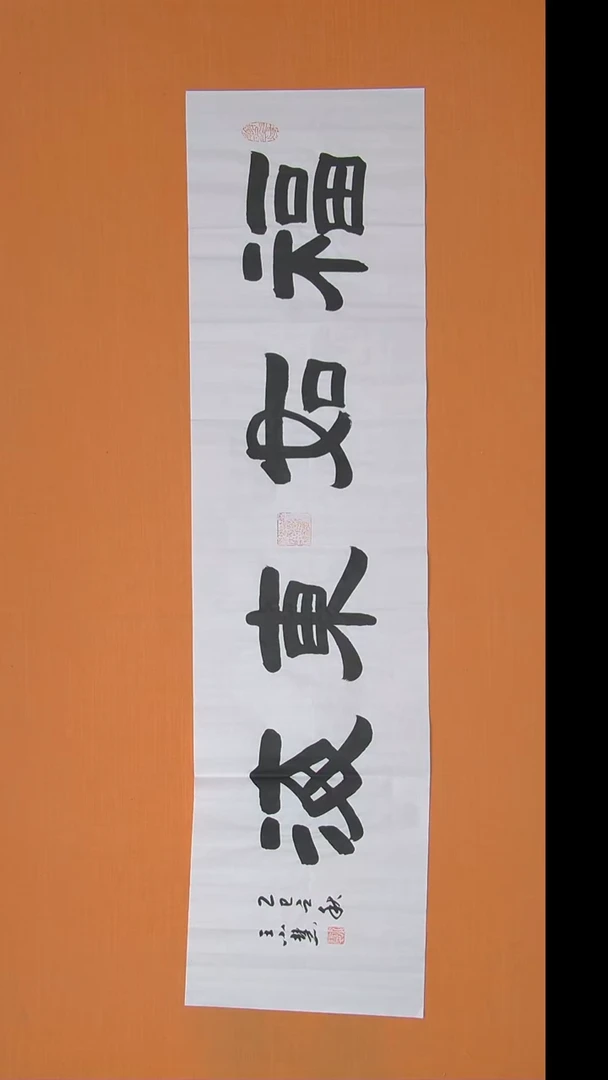 福如東海
乙巳之秋
王小慧